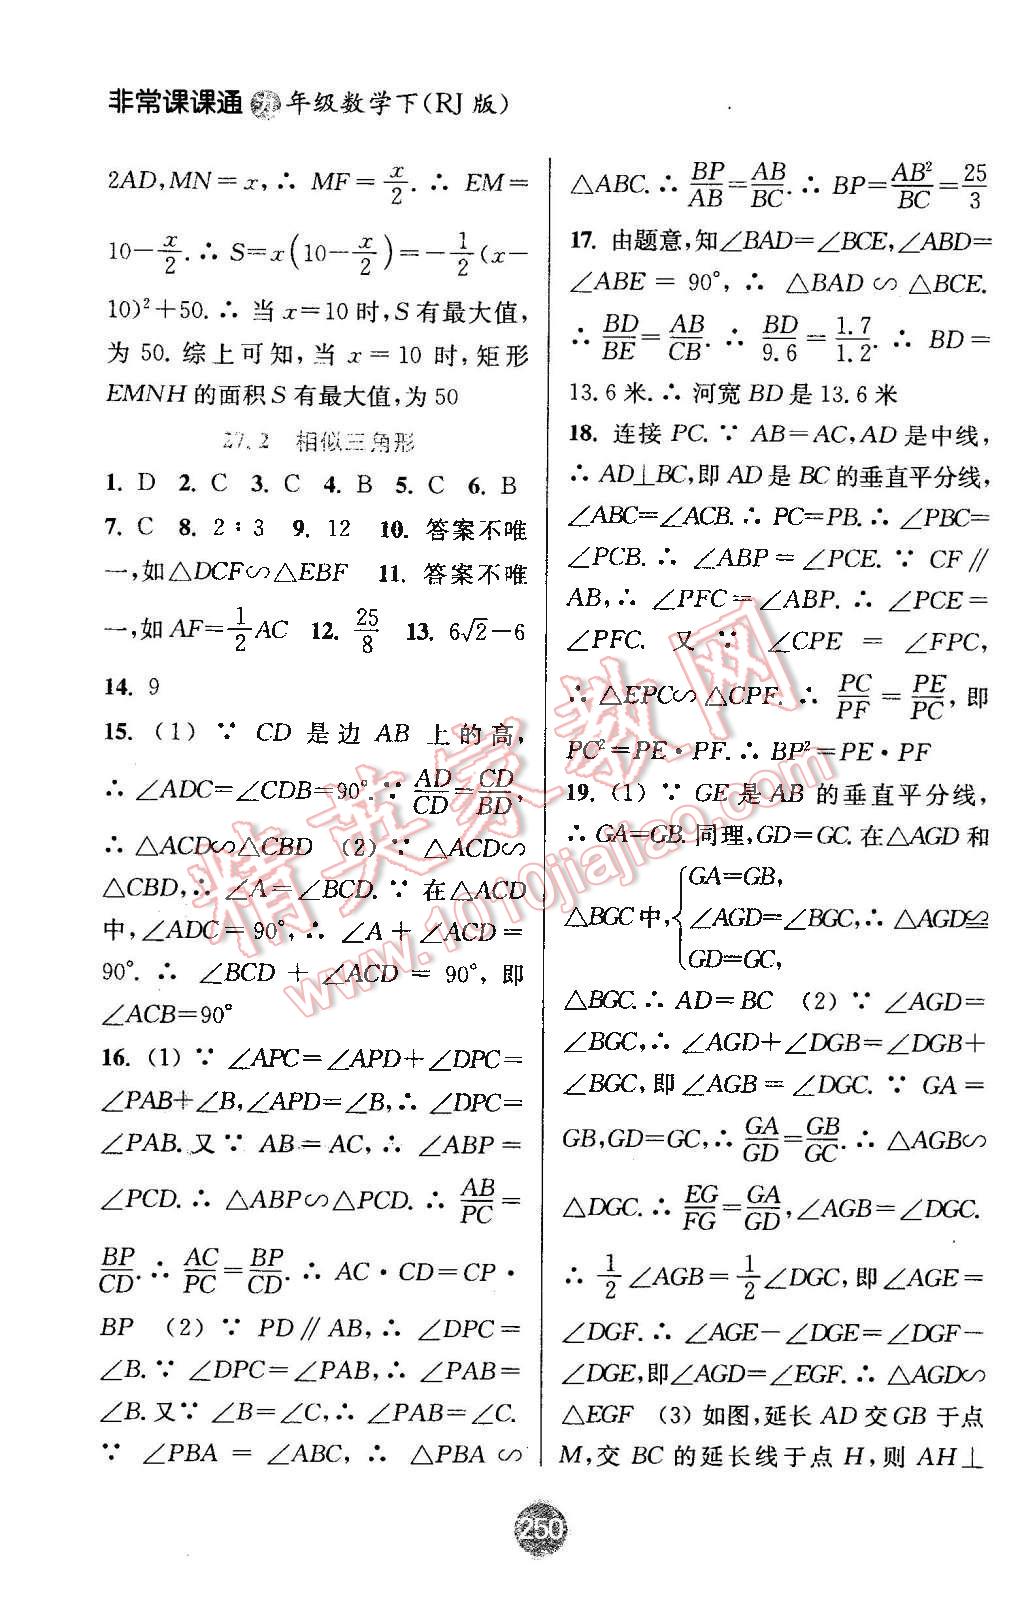 非常课课通 九年级数学下(RJ版)
2AD,MN=x,∴ MF=x/2.∴ EM=
10-x/2.∴ S=x(10-x/2)=-1/2(x-
10)²+50.∴ 当 x=10 时,S 有最大值,
为 50. 综上可知,当 x=10 时,矩形
EMNH 的面积 S 有最大值,为 50
27.2 相似三角形
1. D 2. C 3. C 4. B 5. C 6. B
7. C 8. 2∶3 9. 12 10. 答案不唯
一,如△DCF∽△EBF 11. 答案不唯
一,如 AF=1/2AC 12. 25/8 13. 6√2-6
14. 9
15. (1) ∵ CD 是边 AB 上的高,
∴ ∠ADC=∠CDB=90°.∵ AD/CD=CD/BD,
∴ △ACD∽△CBD (2) ∵ △ACD∽
△CBD,∴ ∠A=∠BCD.∵ 在△ACD
中,∠ADC=90°,∴ ∠A+∠ACD=
90°.∴ ∠BCD+∠ACD=90°,即
∠ACB=90°
16. (1) ∵ ∠APC=∠APD+∠DPC=
∠PAB+∠B,∠APD=∠B,∴ ∠DPC=
∠PAB.又∵ AB=AC,∴ ∠ABP=
∠PCD.∴ △ABP∽△PCD.∴ AB/PC=
BP/CD.∴ AC/PC=BP/CD.∴ AC·CD=CP·
BP (2) ∵ PD∥AB,∴ ∠DPC=
∠B.∵ ∠DPC=∠PAB,∴ ∠PAB=
∠B.又∵ ∠B=∠C,∴ ∠PAB=∠C.
∵ ∠PBA=∠ABC,∴ △PBA∽
△ABC.∴ BP/AB=AB/BC.∴ BP=AB²/BC=25/3
17. 由题意,知∠BAD=∠BCE,∠ABD=
∠ABE=90°,∴ △BAD∽△BCE.
∴ BD/BE=AB/CB.∴ BD/9.6=1.7/1.2.∴ BD=
13.6 米.∴ 河宽 BD 是 13.6 米
18. 连接 PC.∵ AB=AC,AD 是中线,
∴ AD⊥BC,即 AD 是 BC 的垂直平分线,
∠ABC=∠ACB.∴ PC=PB.∴ ∠PBC=
∠PCB.∴ ∠ABP=∠PCE.∵ CF∥
AB,∴ ∠PFC=∠ABP.∴ ∠PCE=
∠PFC.又∵ ∠CPE=∠FPC,
∴ △EPC∽△CPF.∴ PC/PF=PE/PC,即
PC²=PE·PF.∴ BP²=PE·PF
19. (1) ∵ GE 是 AB 的垂直平分线,
∴ GA=GB.同理,GD=GC.在△AGD 和
△BGC 中,{GA=GB,
∠AGD=∠BGC,∴ △AGD≌
GD=GC,
△BGC.∴ AD=BC (2) ∵ ∠AGD=
∠BGC,∴ ∠AGD+∠DGB=∠DGB+
∠BGC,即∠AGB=∠DGC.∵ GA=
GB,GD=GC,∴ GA/GD=GB/GC.∴ △AGB∽
△DGC.∴ EG/FG=GA/GD,∠AGB=∠DGC.
∴ 1/2∠AGB=1/2∠DGC,即∠AGE=
∠DGF.∴ ∠AGE-∠DGE=∠DGF-
∠DGE,即∠AGD=∠EGF.∴ △AGD∽
△EGF (3) 如图,延长 AD 交 GB 于点
M,交 BC 的延长线于点 H,则 AH⊥
250
精英家教网
www.1010jiajiao.com